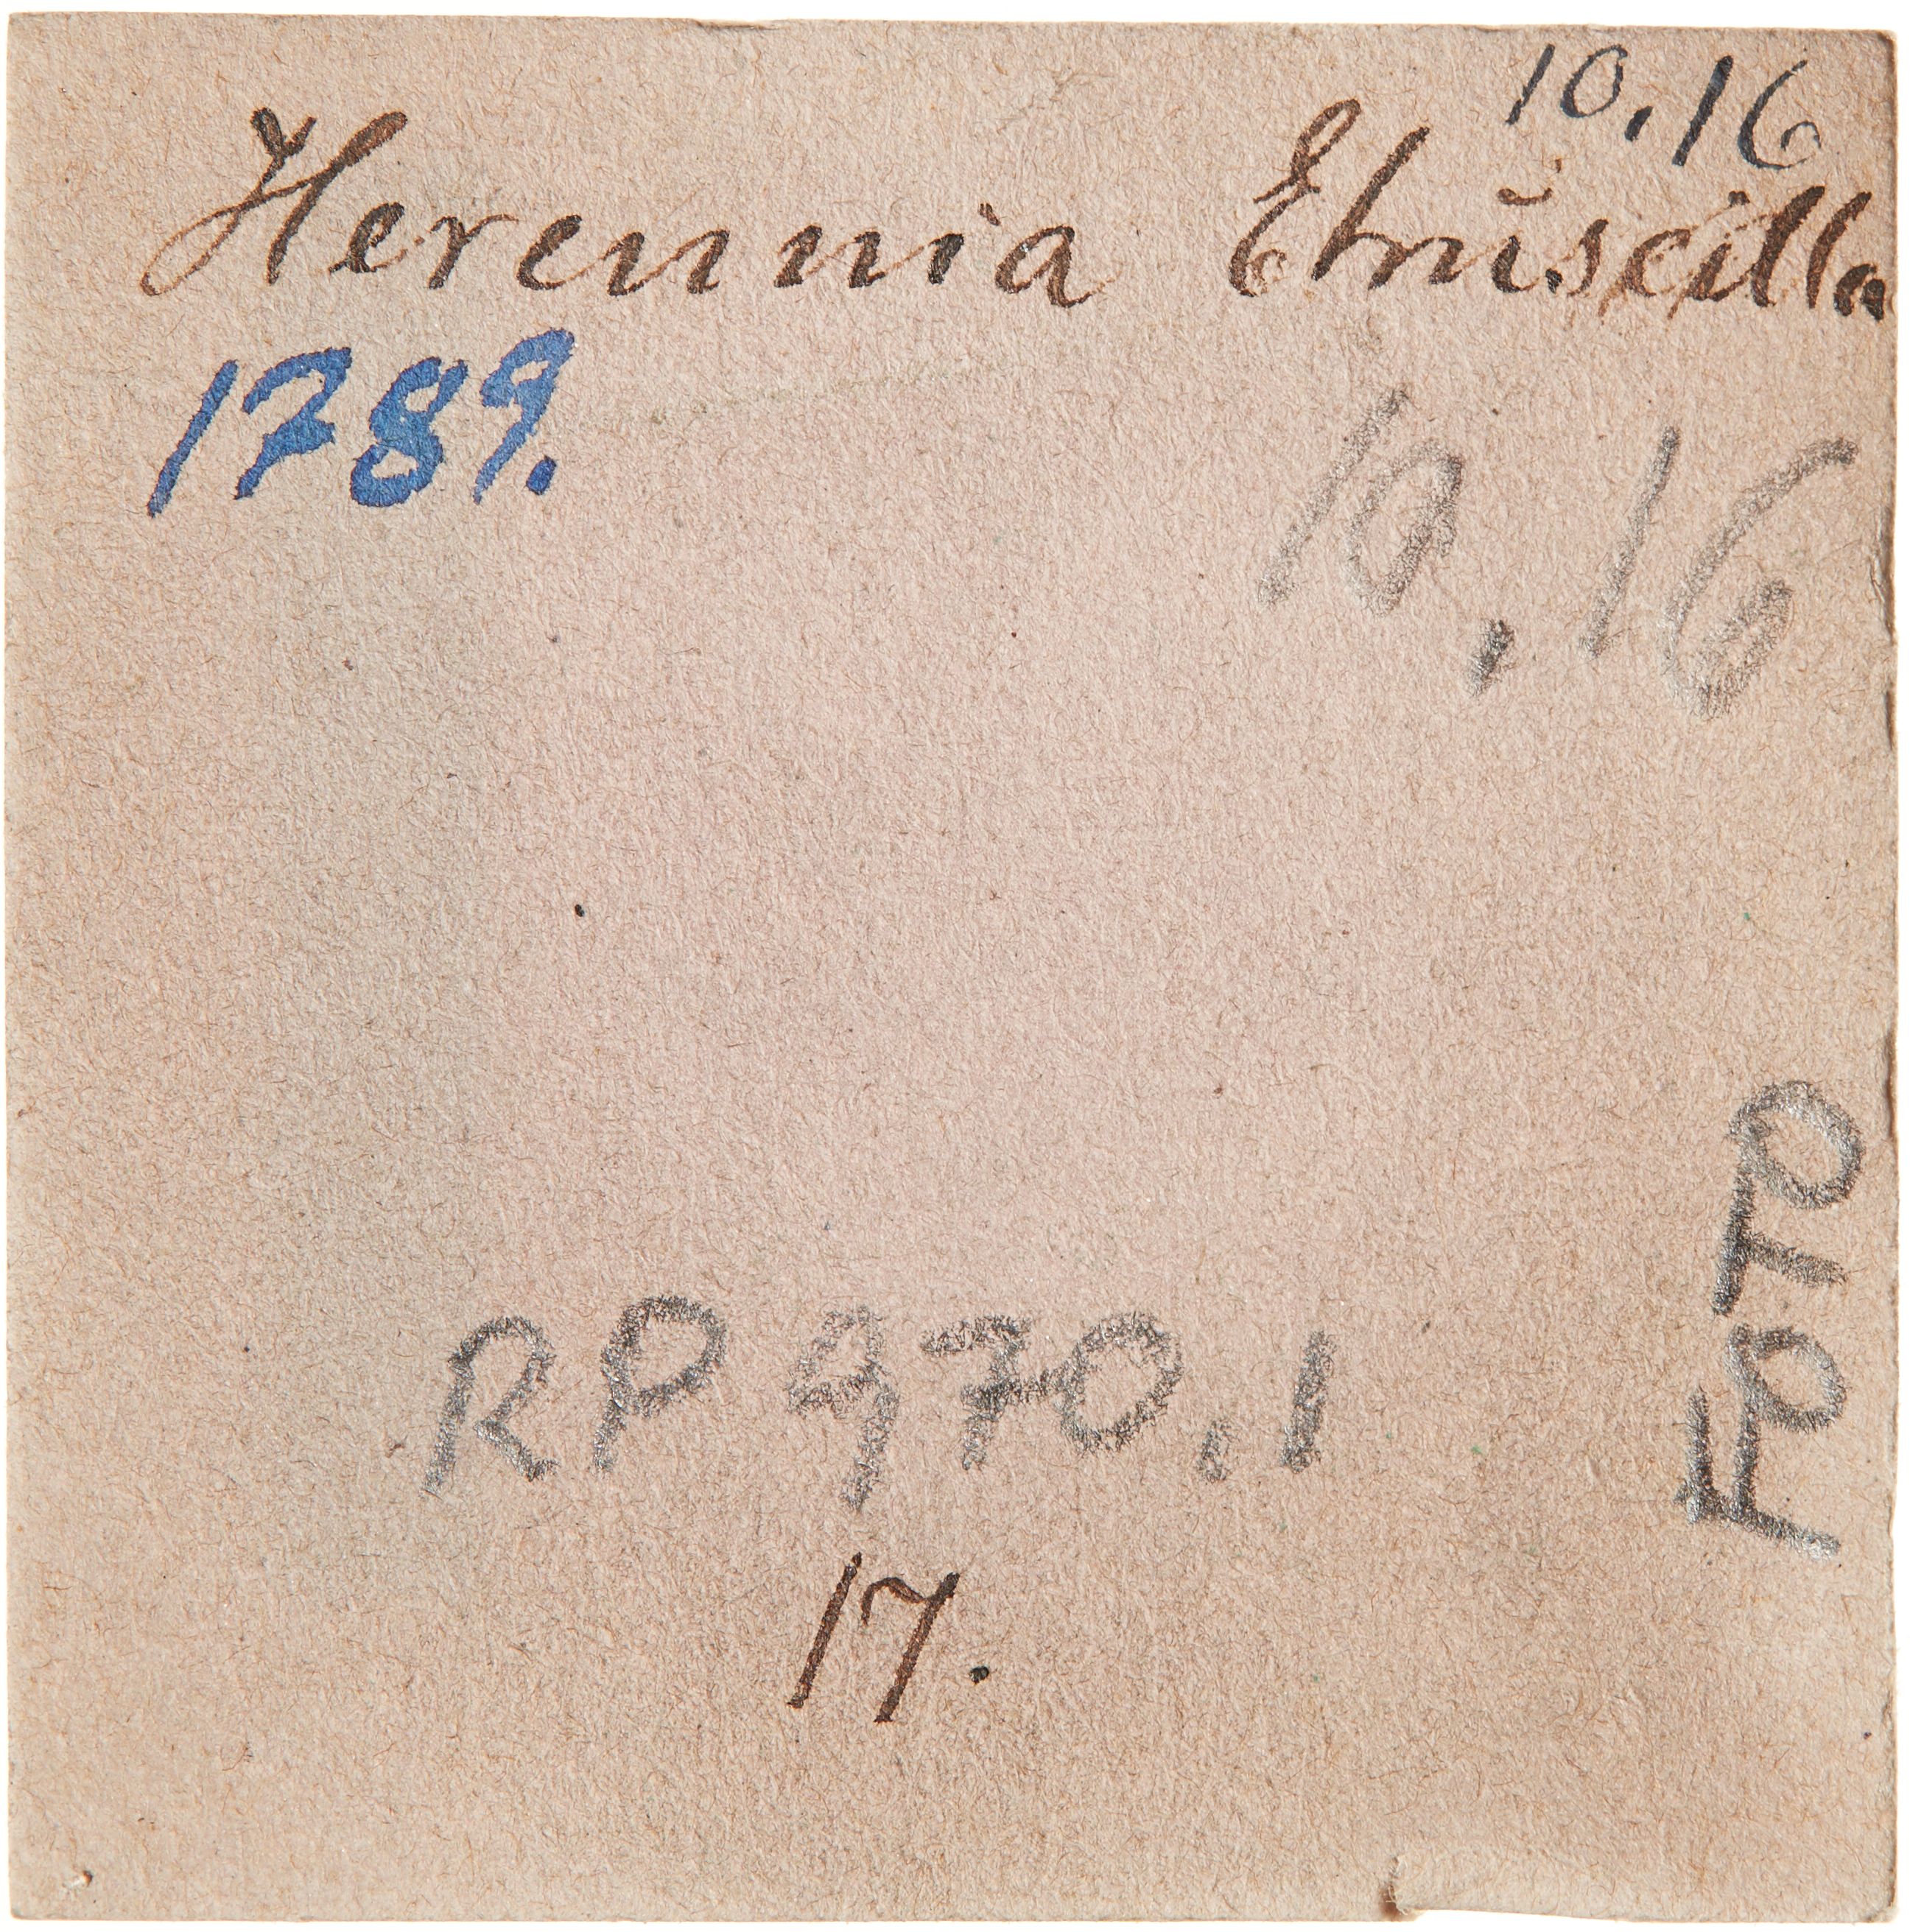 10.16
Herennia Etruscilla
1789.
10.16
FOTO
RP 970,1
17.